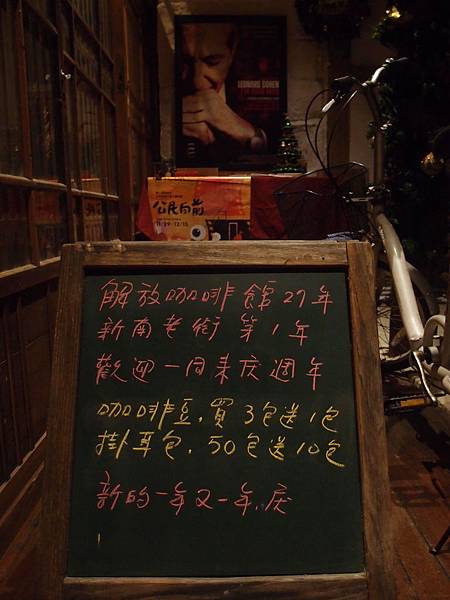 LEONARD COHEN
公民向前
11/29-12/15
解放咖啡館27年
新南老街 第1年
歡迎一同来庆週年
咖啡豆,買3包送1包
掛耳包,50包送10包
新的一年又一年,庆